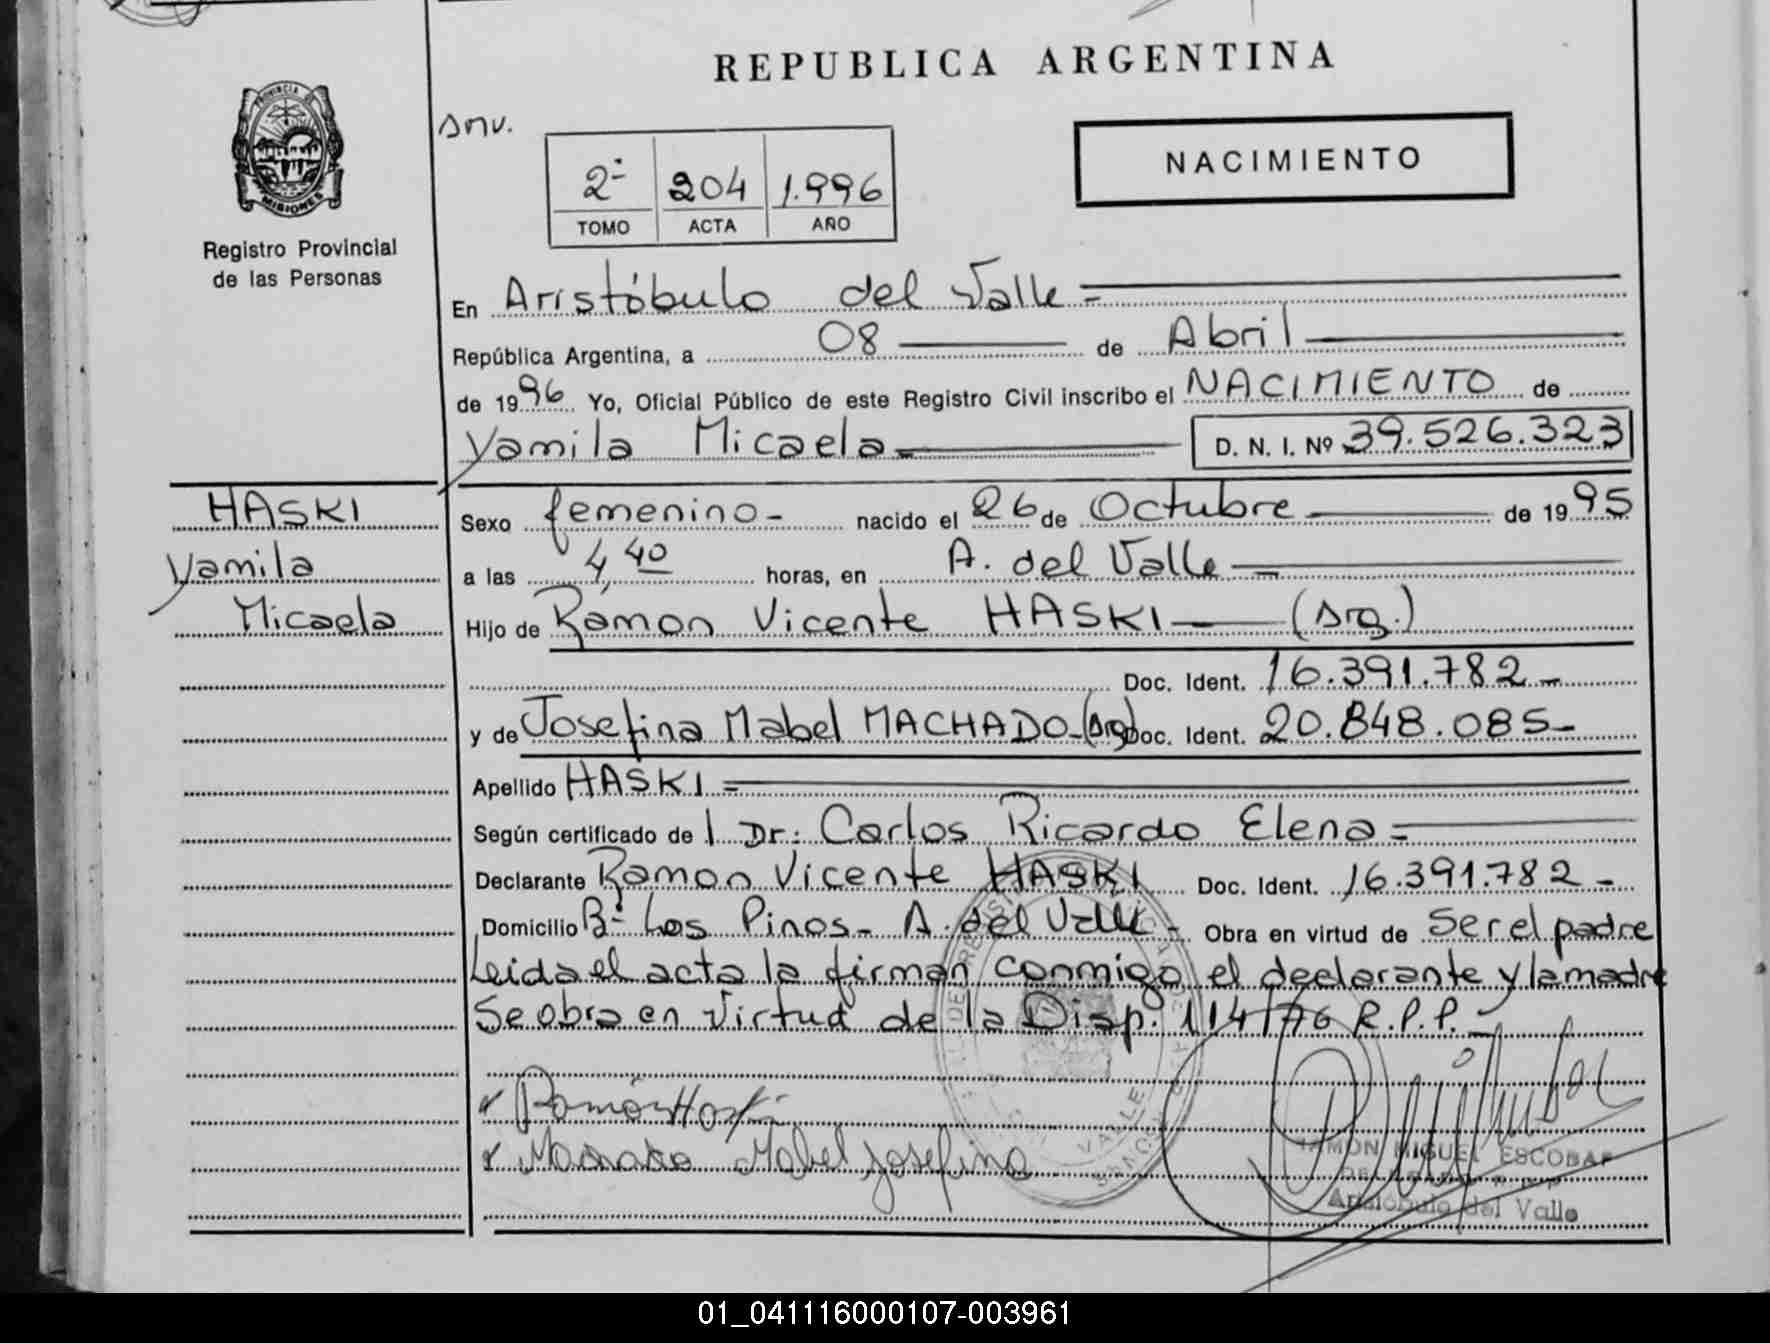 REPUBLICA ARGENTINA
PROVINCIA DE
MISIONES
Registro Provincial
de las Personas
NACIMIENTO
2º 204 1.996
TOMO ACTA AÑO
En Aristóbulo del Valle =
República Argentina, a 08 de Abril
de 1996 Yo, Oficial Público de este Registro Civil inscribo el NACIMIENTO de
Yamila Micaela D. N. I. Nº 39.526.323
HASKI
Yamila
Micaela
Sexo femenino - nacido el 26 de Octubre de 1995
a las 4,40 horas, en A. del Valle
Hijo de Ramon Vicente HASKI (Arg.)
Doc. Ident. 16.391.782 -
y de Josefina Mabel MACHADO-(Arg) Doc. Ident. 20.848.085-
Apellido HASKI =
Según certificado de l Dr: Carlos Ricardo Elena =
Declarante Ramon Vicente HASKI Doc. Ident. 16.391.782 -
Domicilio Bº Los Pinos - A. del Valle - Obra en virtud de Ser el padre
Leida el acta la firman conmigo el declarante y la madre
Se obra en Virtud de la Disp. 114/76 R.P.P. -
Ramón Haski
Mabel Josefina
VALLE
RAMON MIGUEL ESCOBAR
Aristóbulo del Valle
01_041116000107-003961